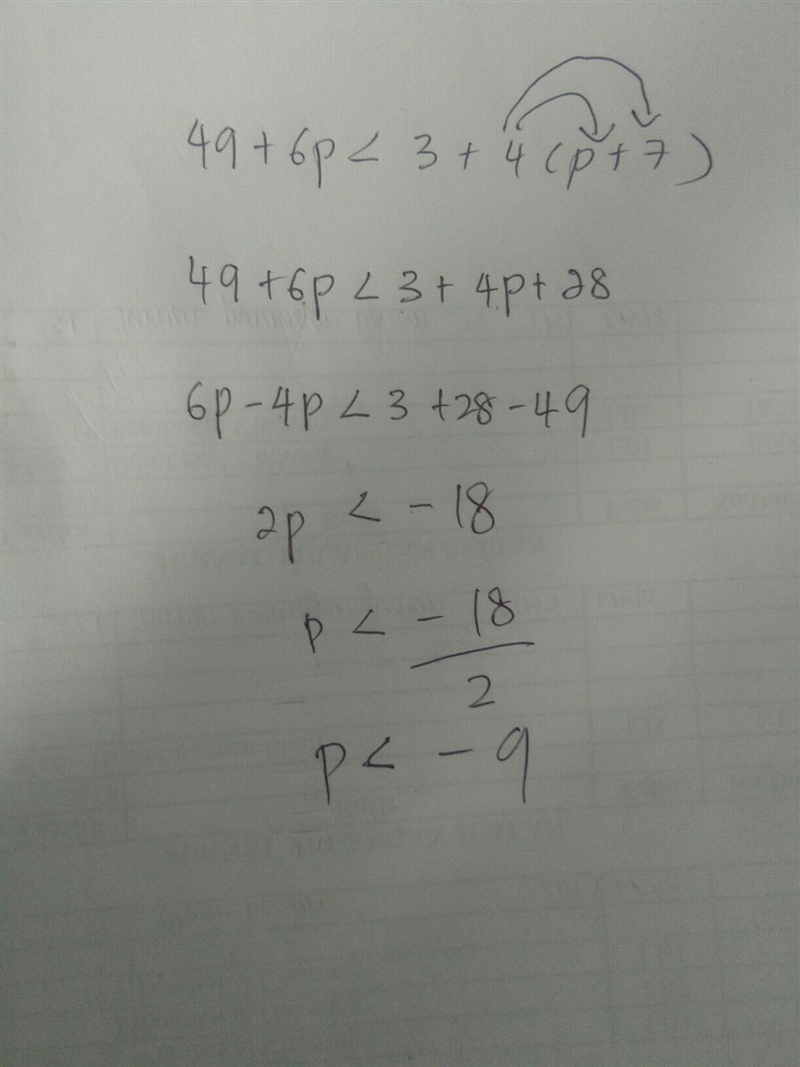 49 + 6p < 3 + 4 (p + 7)
49 + 6p < 3 + 4p + 28
6p - 4p < 3 + 28 - 49
2p < - 18
p < - 18
2
p < - 9